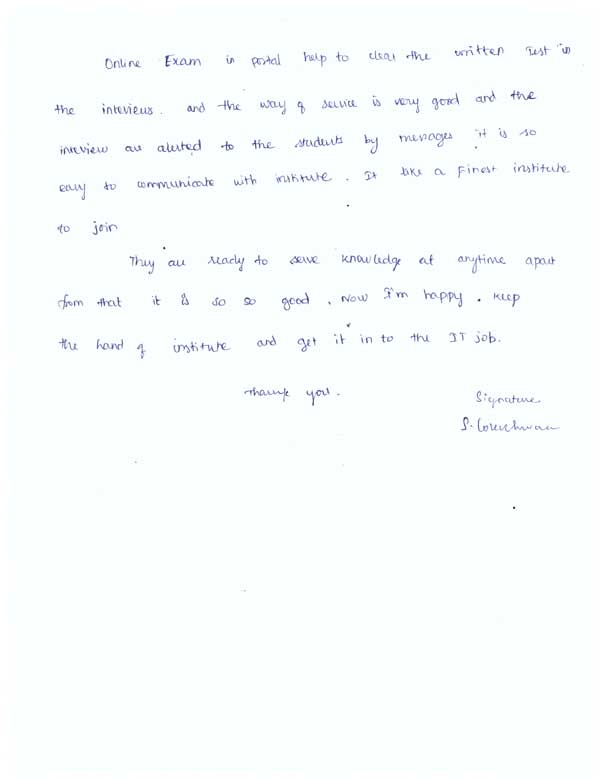 Online Exam in portal help to clear the written Test in
the interviews. and the way of service is very good and the
interview are alerted to the students by messages it is so
easy to communicate with institute. It like a Finest institute
to join
They are ready to serve knowledge at anytime apart
from that it is so so good. Now I'm happy. keep
the hand of institute and get it in to the IT job.
Thank you.
Signature
S.